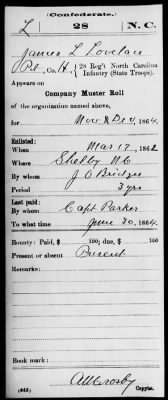 (Confederate.)
L 28 N.C.
James L. Lovelace
Pvt, Co. H, 28 Reg't North Carolina
Infantry (State Troops).
Appears on
Company Muster Roll
of the organization named above,
for Nov & Dec, 1864.
Enlisted:
When Mar 17, 1862
Where Shelby NC
By whom J. O Bridges
Period 3 yrs
Last paid:
By whom Capt Parker
To what time June 30, 1864.
Bounty: Paid, $ 100; due, $ 100
Present or absent Present
Remarks:
Book mark:
(642) Copyist.